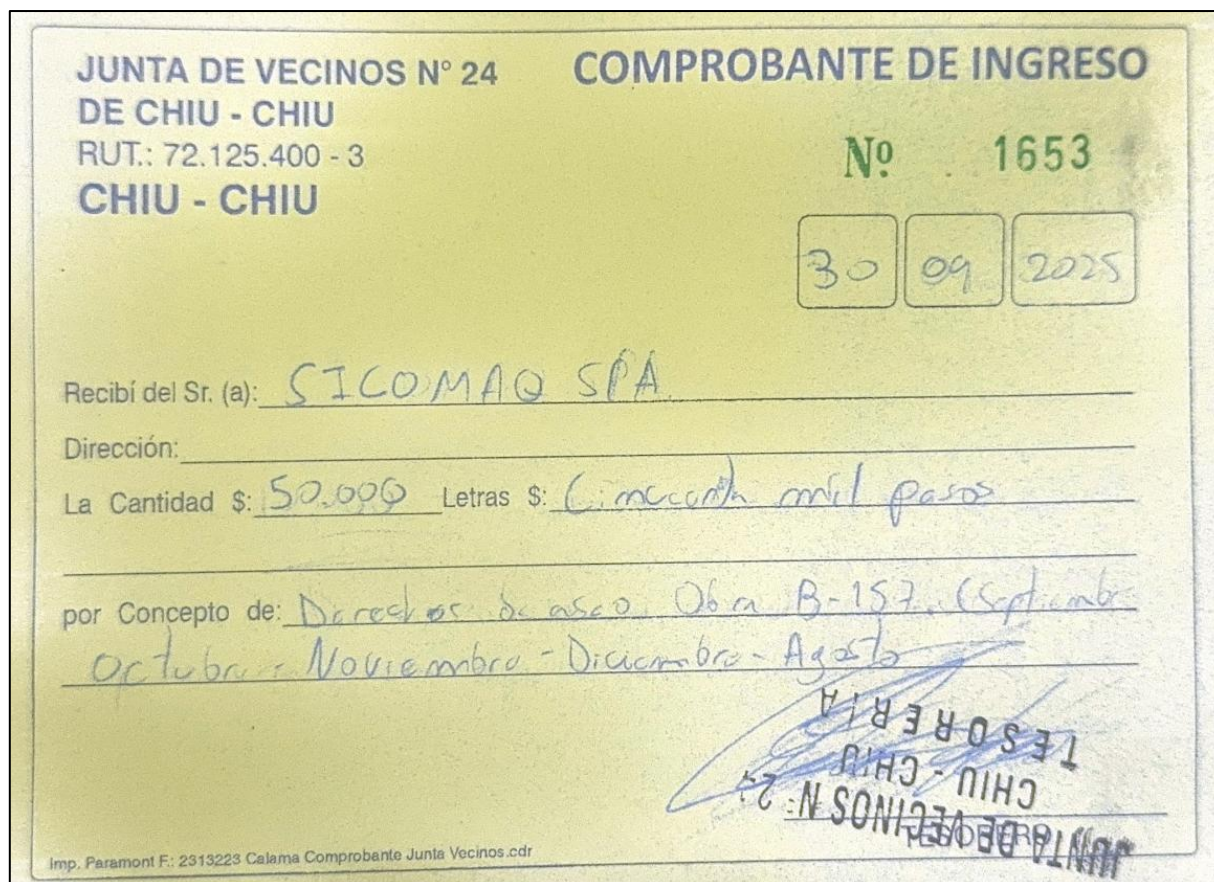 JUNTA DE VECINOS N° 24
DE CHIU - CHIU
RUT.: 72.125.400 - 3
CHIU - CHIU
COMPROBANTE DE INGRESO
Nº 1653
30 09 2025
Recibí del Sr. (a): SICOMAQ SPA
Dirección:
La Cantidad $: 50.000 Letras $: Cincuenta mil pesos
por Concepto de: Derechos de aseo Obra B-157. (Septiembre
Octubre - Noviembre - Diciembre - Agosto
TESORERIA
CHIU - CHIU
JUNTA DE VECINOS N° 24
TESORERO
Imp. Paramont F.: 2313223 Calama Comprobante Junta Vecinos.cdr